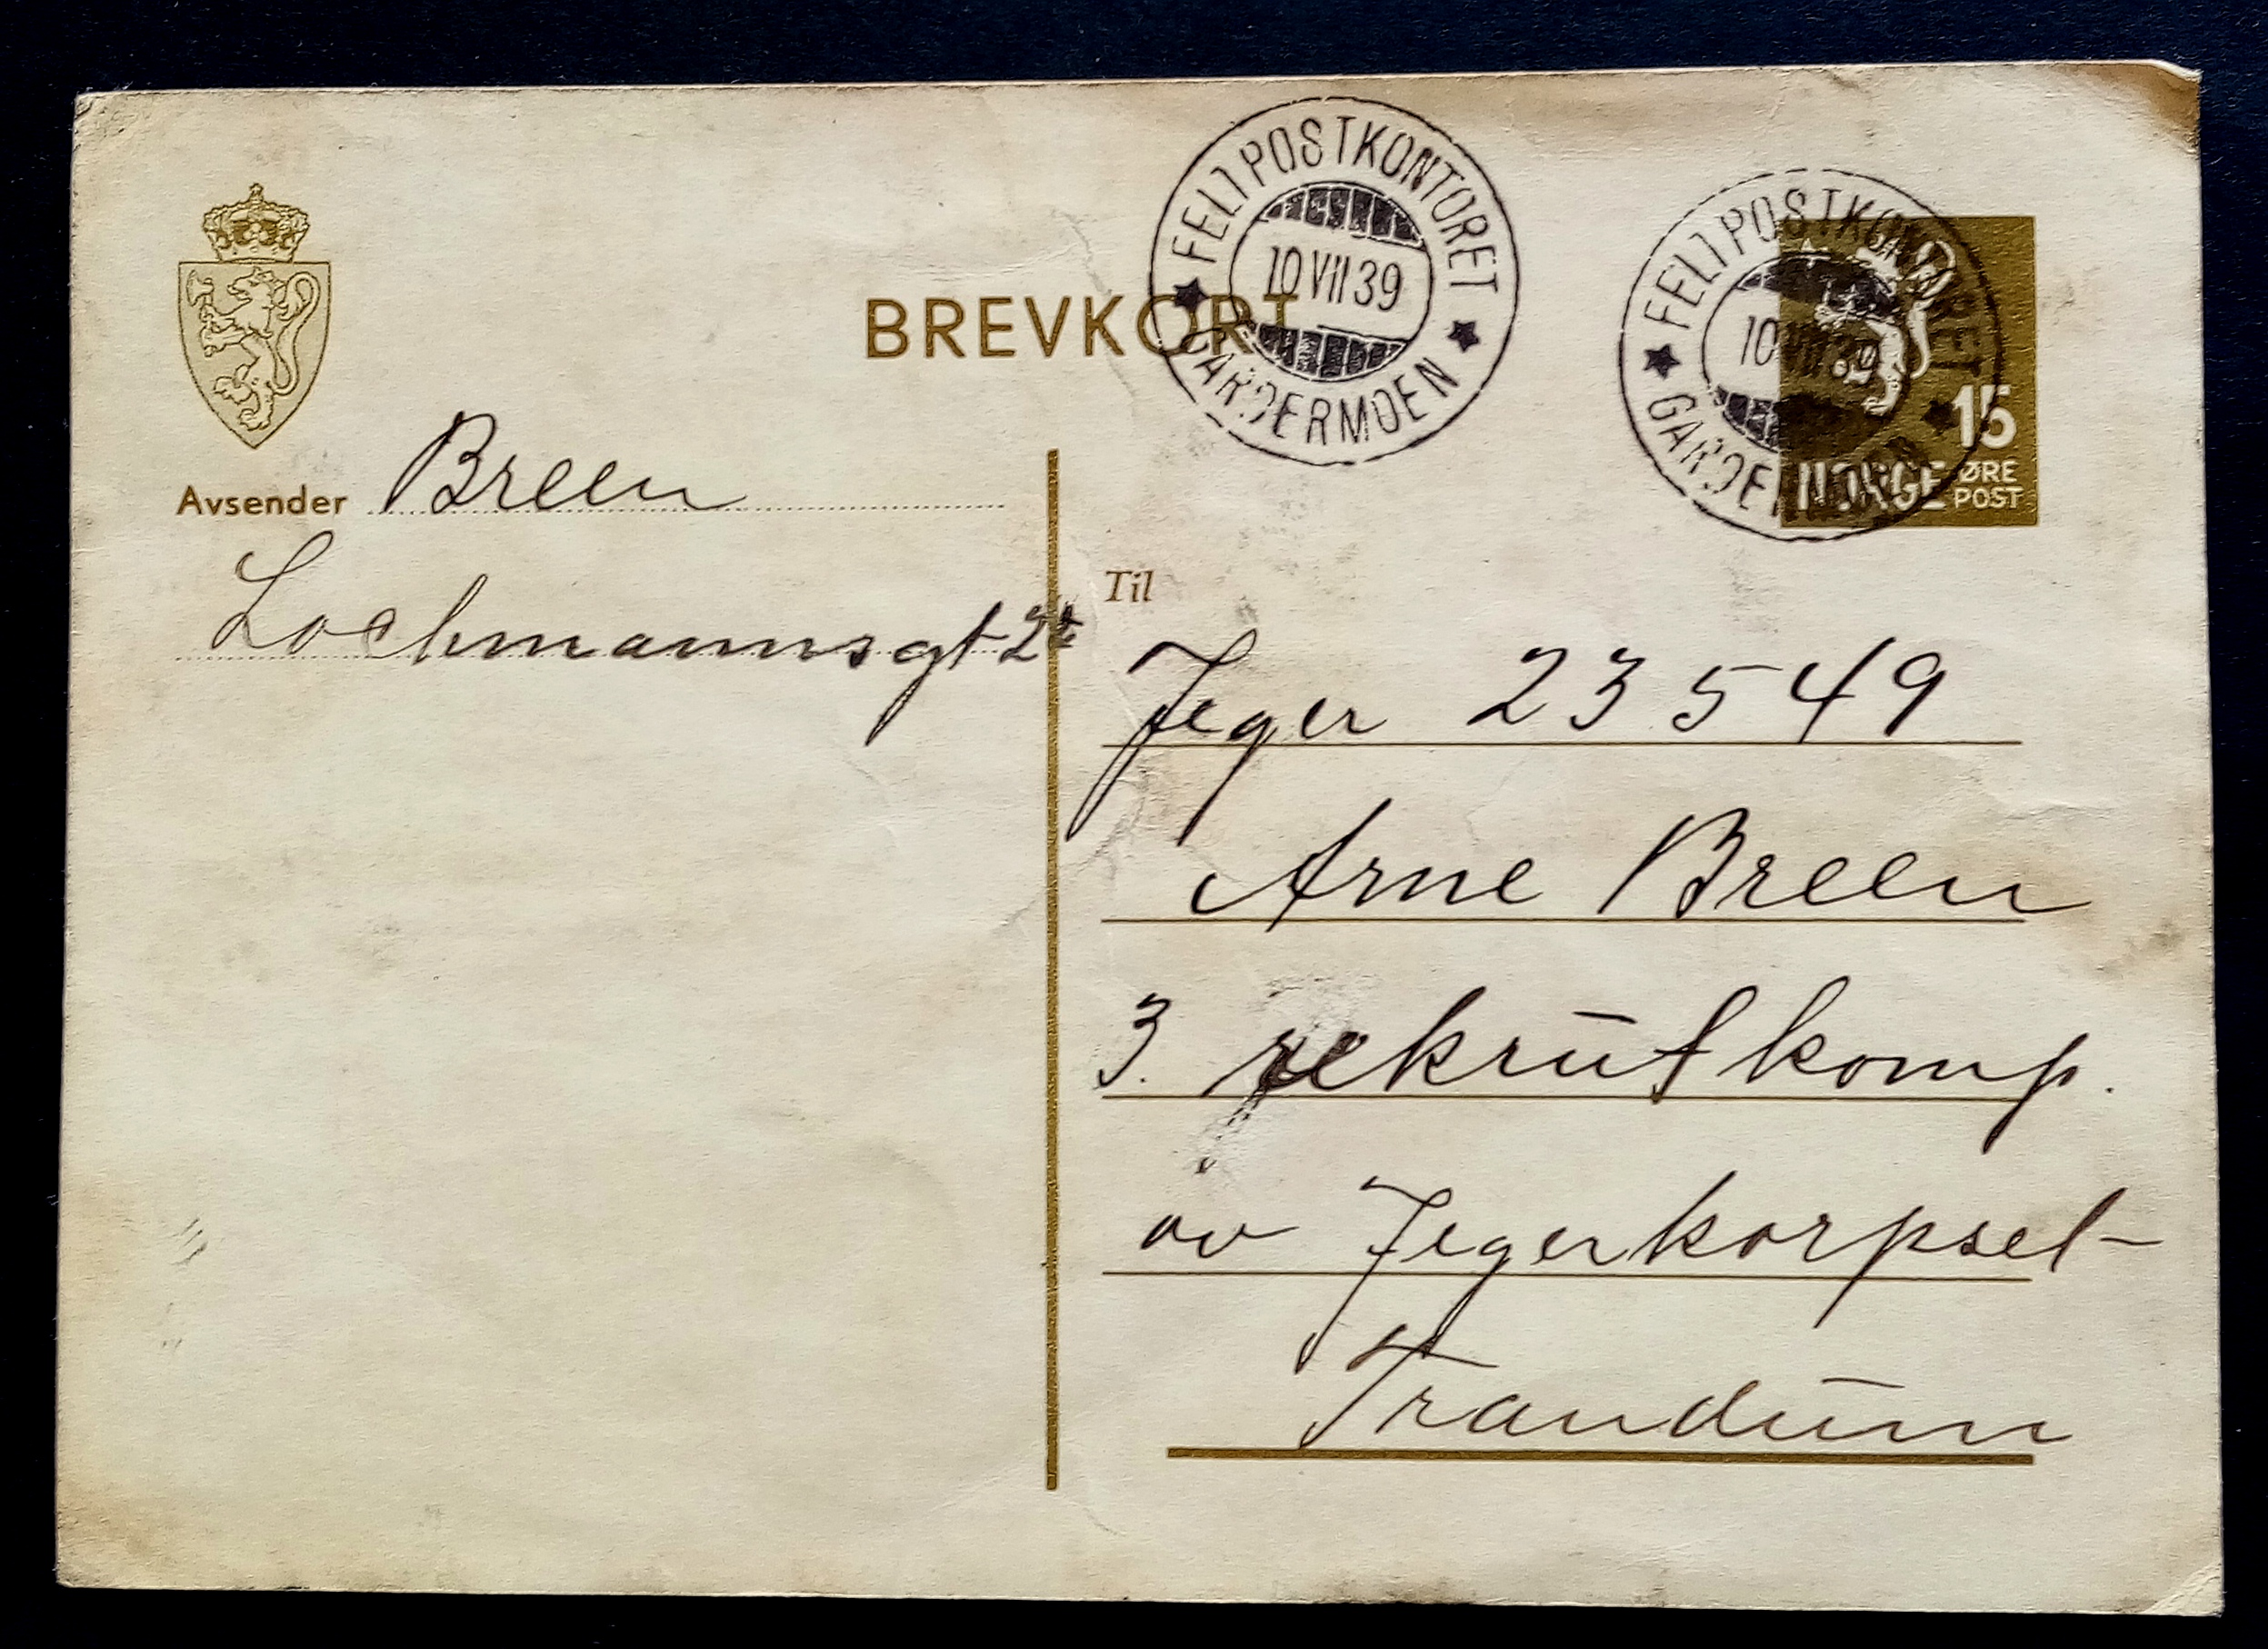 FELTPOSTKONTORET
10 VII 39
GARDERMOEN
FELTPOSTKONTORET
10 VII 39
GARDERMOEN
15
NORGE ØRE
POST
BREVKORT
Avsender Breen
Lochmannsgt
Til
Jeger 23549
Arne Breen
3. rekrutkomp.
av Jegerkorpset
Trandum